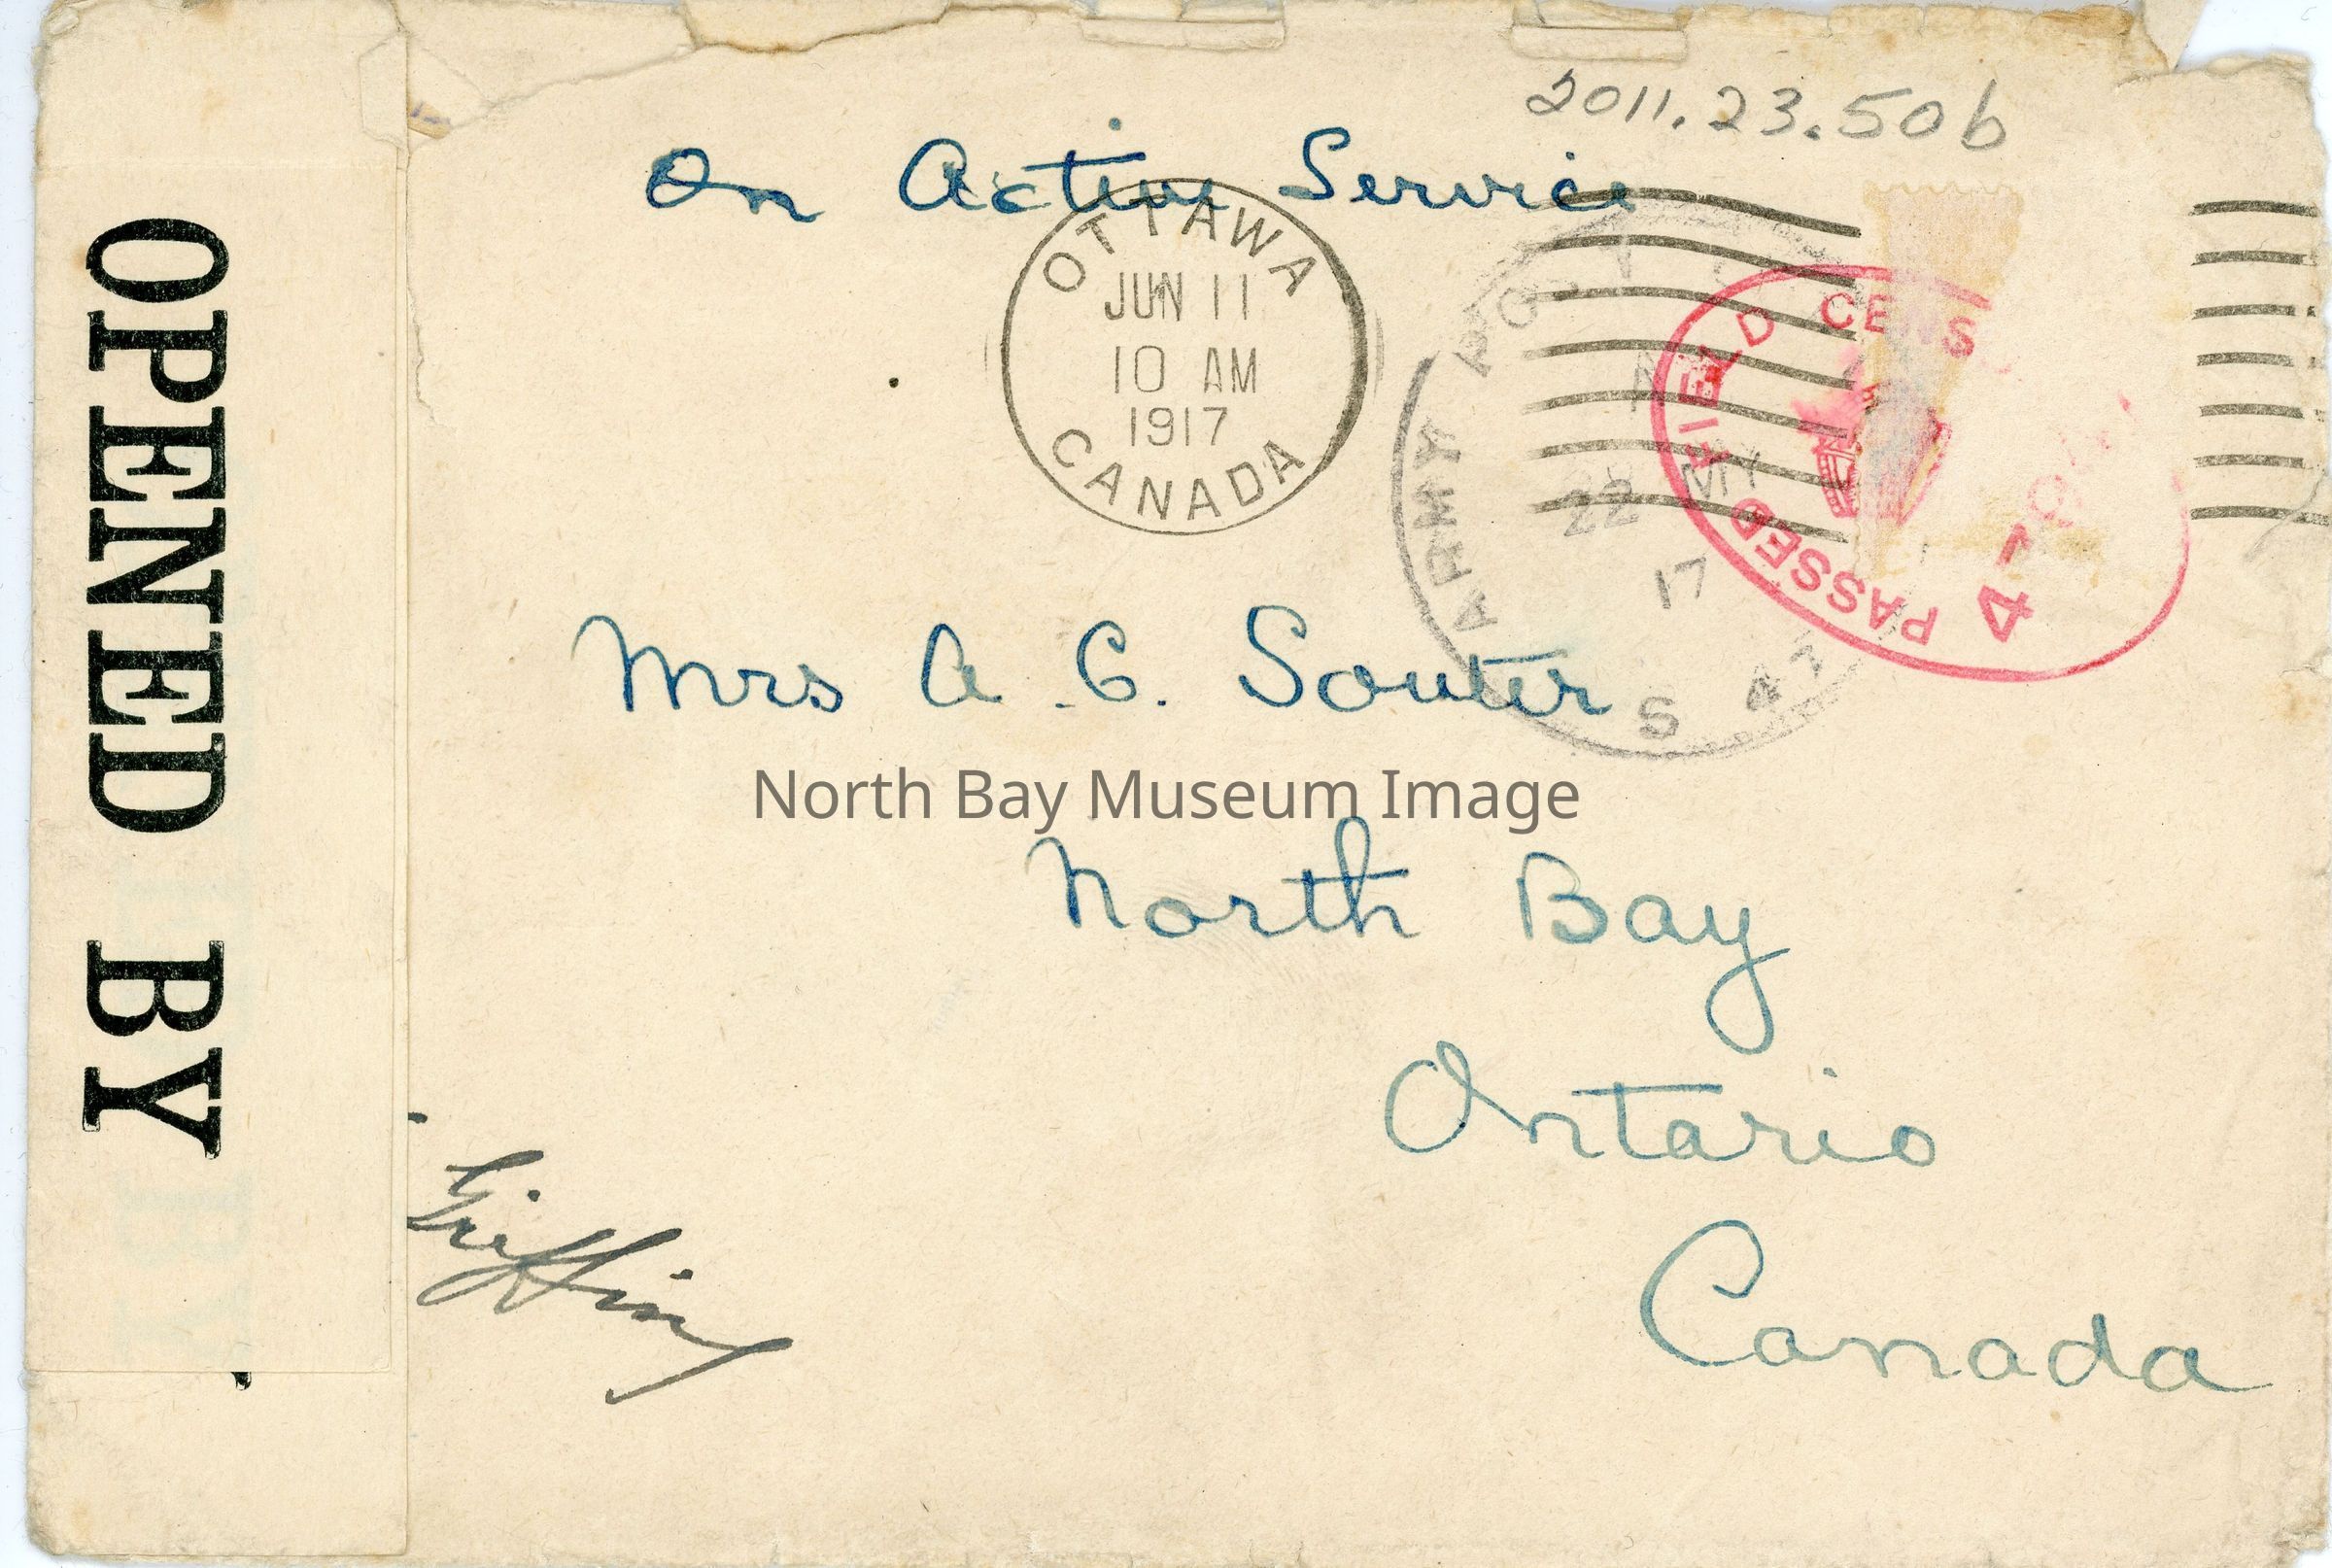 2011.23.50b
On Active Service
OTTAWA
JUN 11
10 AM
1917
CANADA
ARMY POST
22 MY
17
S 42
PASSED FIELD CENS
4
Mrs A. C. Souter
North Bay Museum Image
North Bay
Ontario
Canada
Griffin
OPENED BY